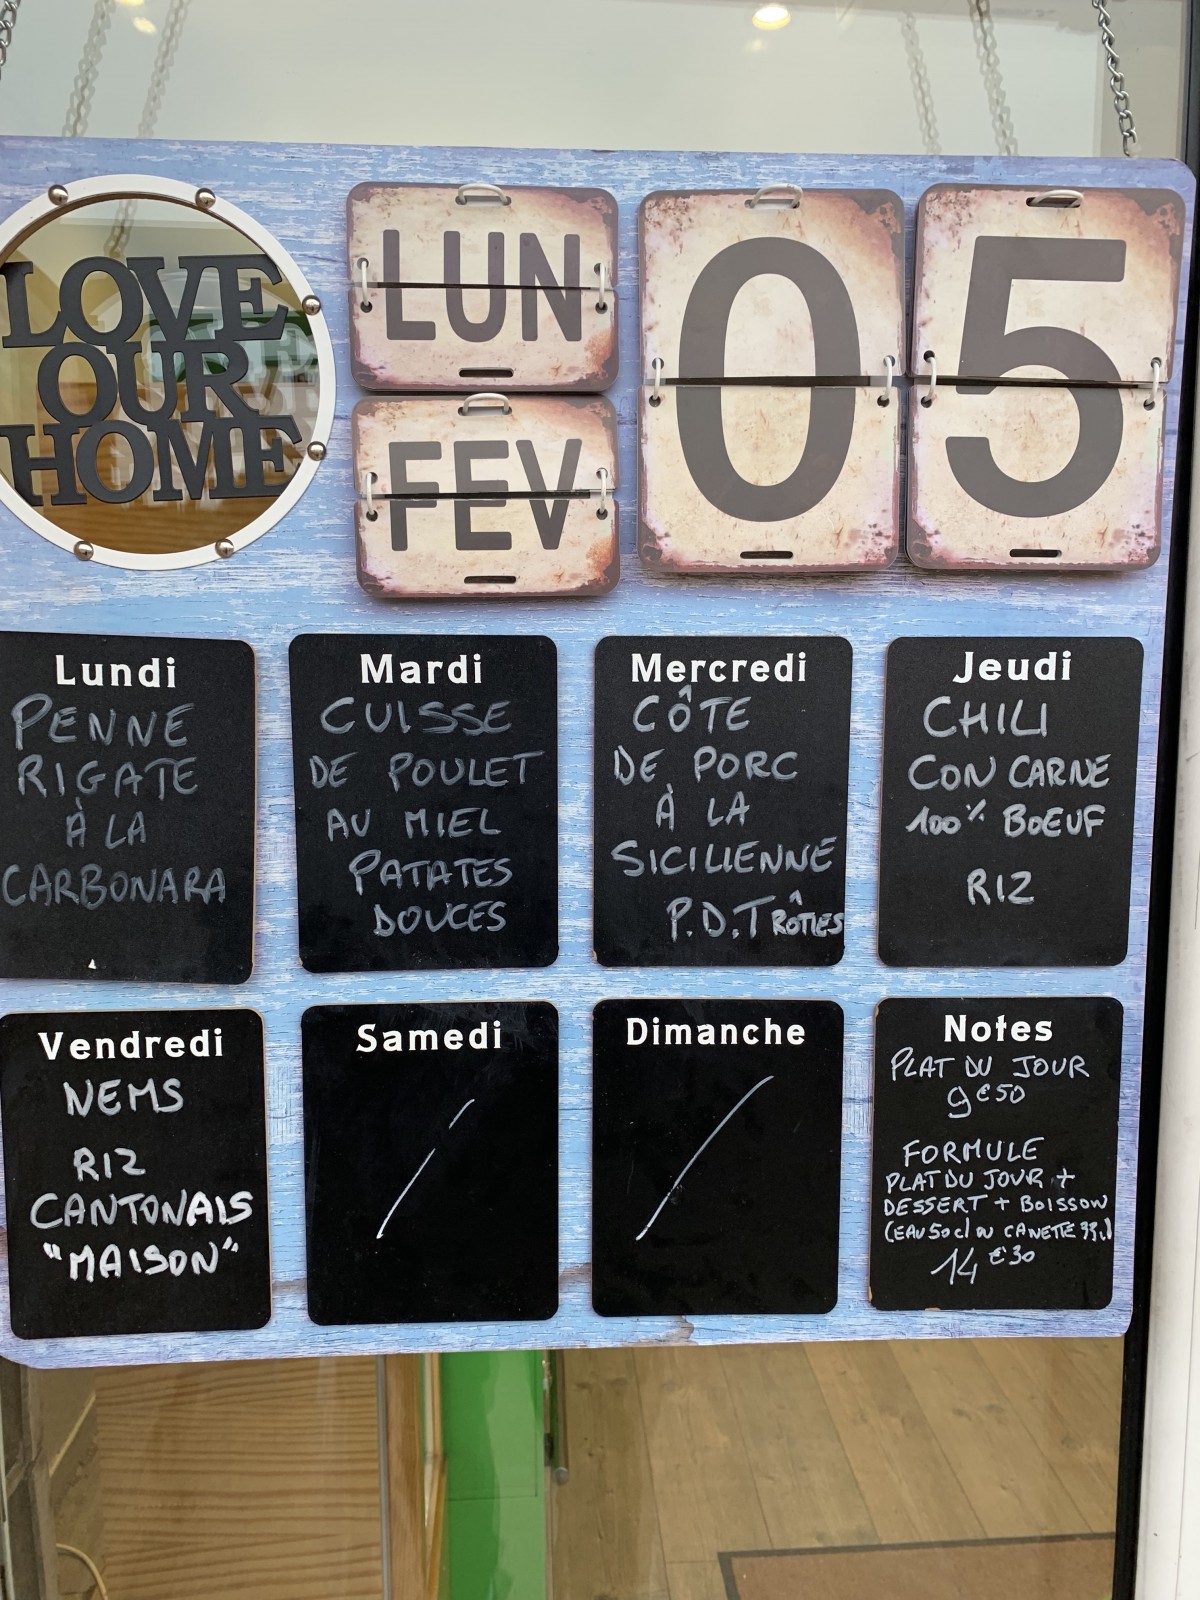 LOVE
OUR
HOME
LUN
FEV
05
Lundi
PENNE
RIGATE
À LA
CARBONARA
Mardi
CUISSE
DE POULET
AU MIEL
PATATES
DOUCES
Mercredi
CÔTE
DE PORC
À LA
SICILIENNE
P.D.T RÔTIES
Jeudi
CHILI
CON CARNE
100% BOEUF
RIZ
Vendredi
NEMS
RIZ
CANTONAIS
"MAISON"
Samedi
Dimanche
Notes
PLAT DU JOUR
9€50
FORMULE
PLAT DU JOUR +
DESSERT + BOISSON
(EAU 50cl OU CANETTE
14€30